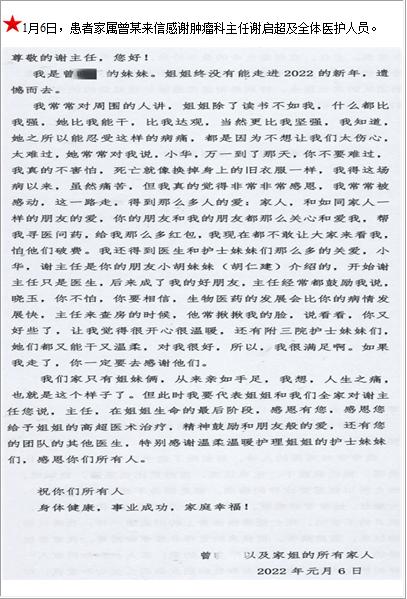 ★1月6日，患者家属曾某来信感谢肿瘤科主任谢启超及全体医护人员。
尊敬的谢主任，您好！
我是曾 的妹妹。姐姐终没有能走进2022的新年，遗
憾而去。
我常常对周围的人讲，姐姐除了读书不如我，什么都比
我强，她比我能干，比我达观，当然更比我坚强，我知道，
她之所以能忍受这样的病痛，都是因为不想让我们太伤心，
太难过，她常常对我说，小华，万一到了那天，你不要难过，
我真的不害怕，死亡就像换掉身上的旧衣服一样，我得这场
病以来，虽然痛苦，但我真的觉得非常非常感恩，我常常被
感动，这一路走，得到那么多人的爱：家人，和如同家人一
样的朋友的爱，你的朋友和我的朋友都那么关心和爱我，帮
我寻医问药，给我那么多红包，我现在都不敢让大家来看我，
怕他们破费。我还得到医生和护士妹妹们那么多的关爱，小
华，谢主任是你的朋友小胡妹妹（胡仁建）介绍的，开始谢
主任只是医生，后来成了我的好朋友，主任经常都鼓励我说，
晓玉，你不怕，你要相信，生物医药的发展会比你的病情发
展快，主任来查房的时候，他常揪揪我的脸，说看看，你又
好些了，让我觉得很开心很温暖，还有附三院护士妹妹们，
她们都又能干又温柔，对我很好，所以，我很满足啊。如果
我走了，你一定要去感谢他们。
我们家只有姐妹俩，从来亲如手足，我想，人生之痛，
也就是这个样子了。但此时我要代表姐姐和我们全家对谢主
任您说，主任，在姐姐生命的最后阶段，感恩有您，感恩您
给予姐姐的高超医术治疗，精神鼓励和朋友般的爱，还有您
的团队的其他医生，特别感谢温柔温暖护理姐姐的护士妹妹
们，感恩你们所有人。
祝你们所有人
身体健康，事业成功，家庭幸福！
曾 以及家姐的所有家人
2022年元月6日